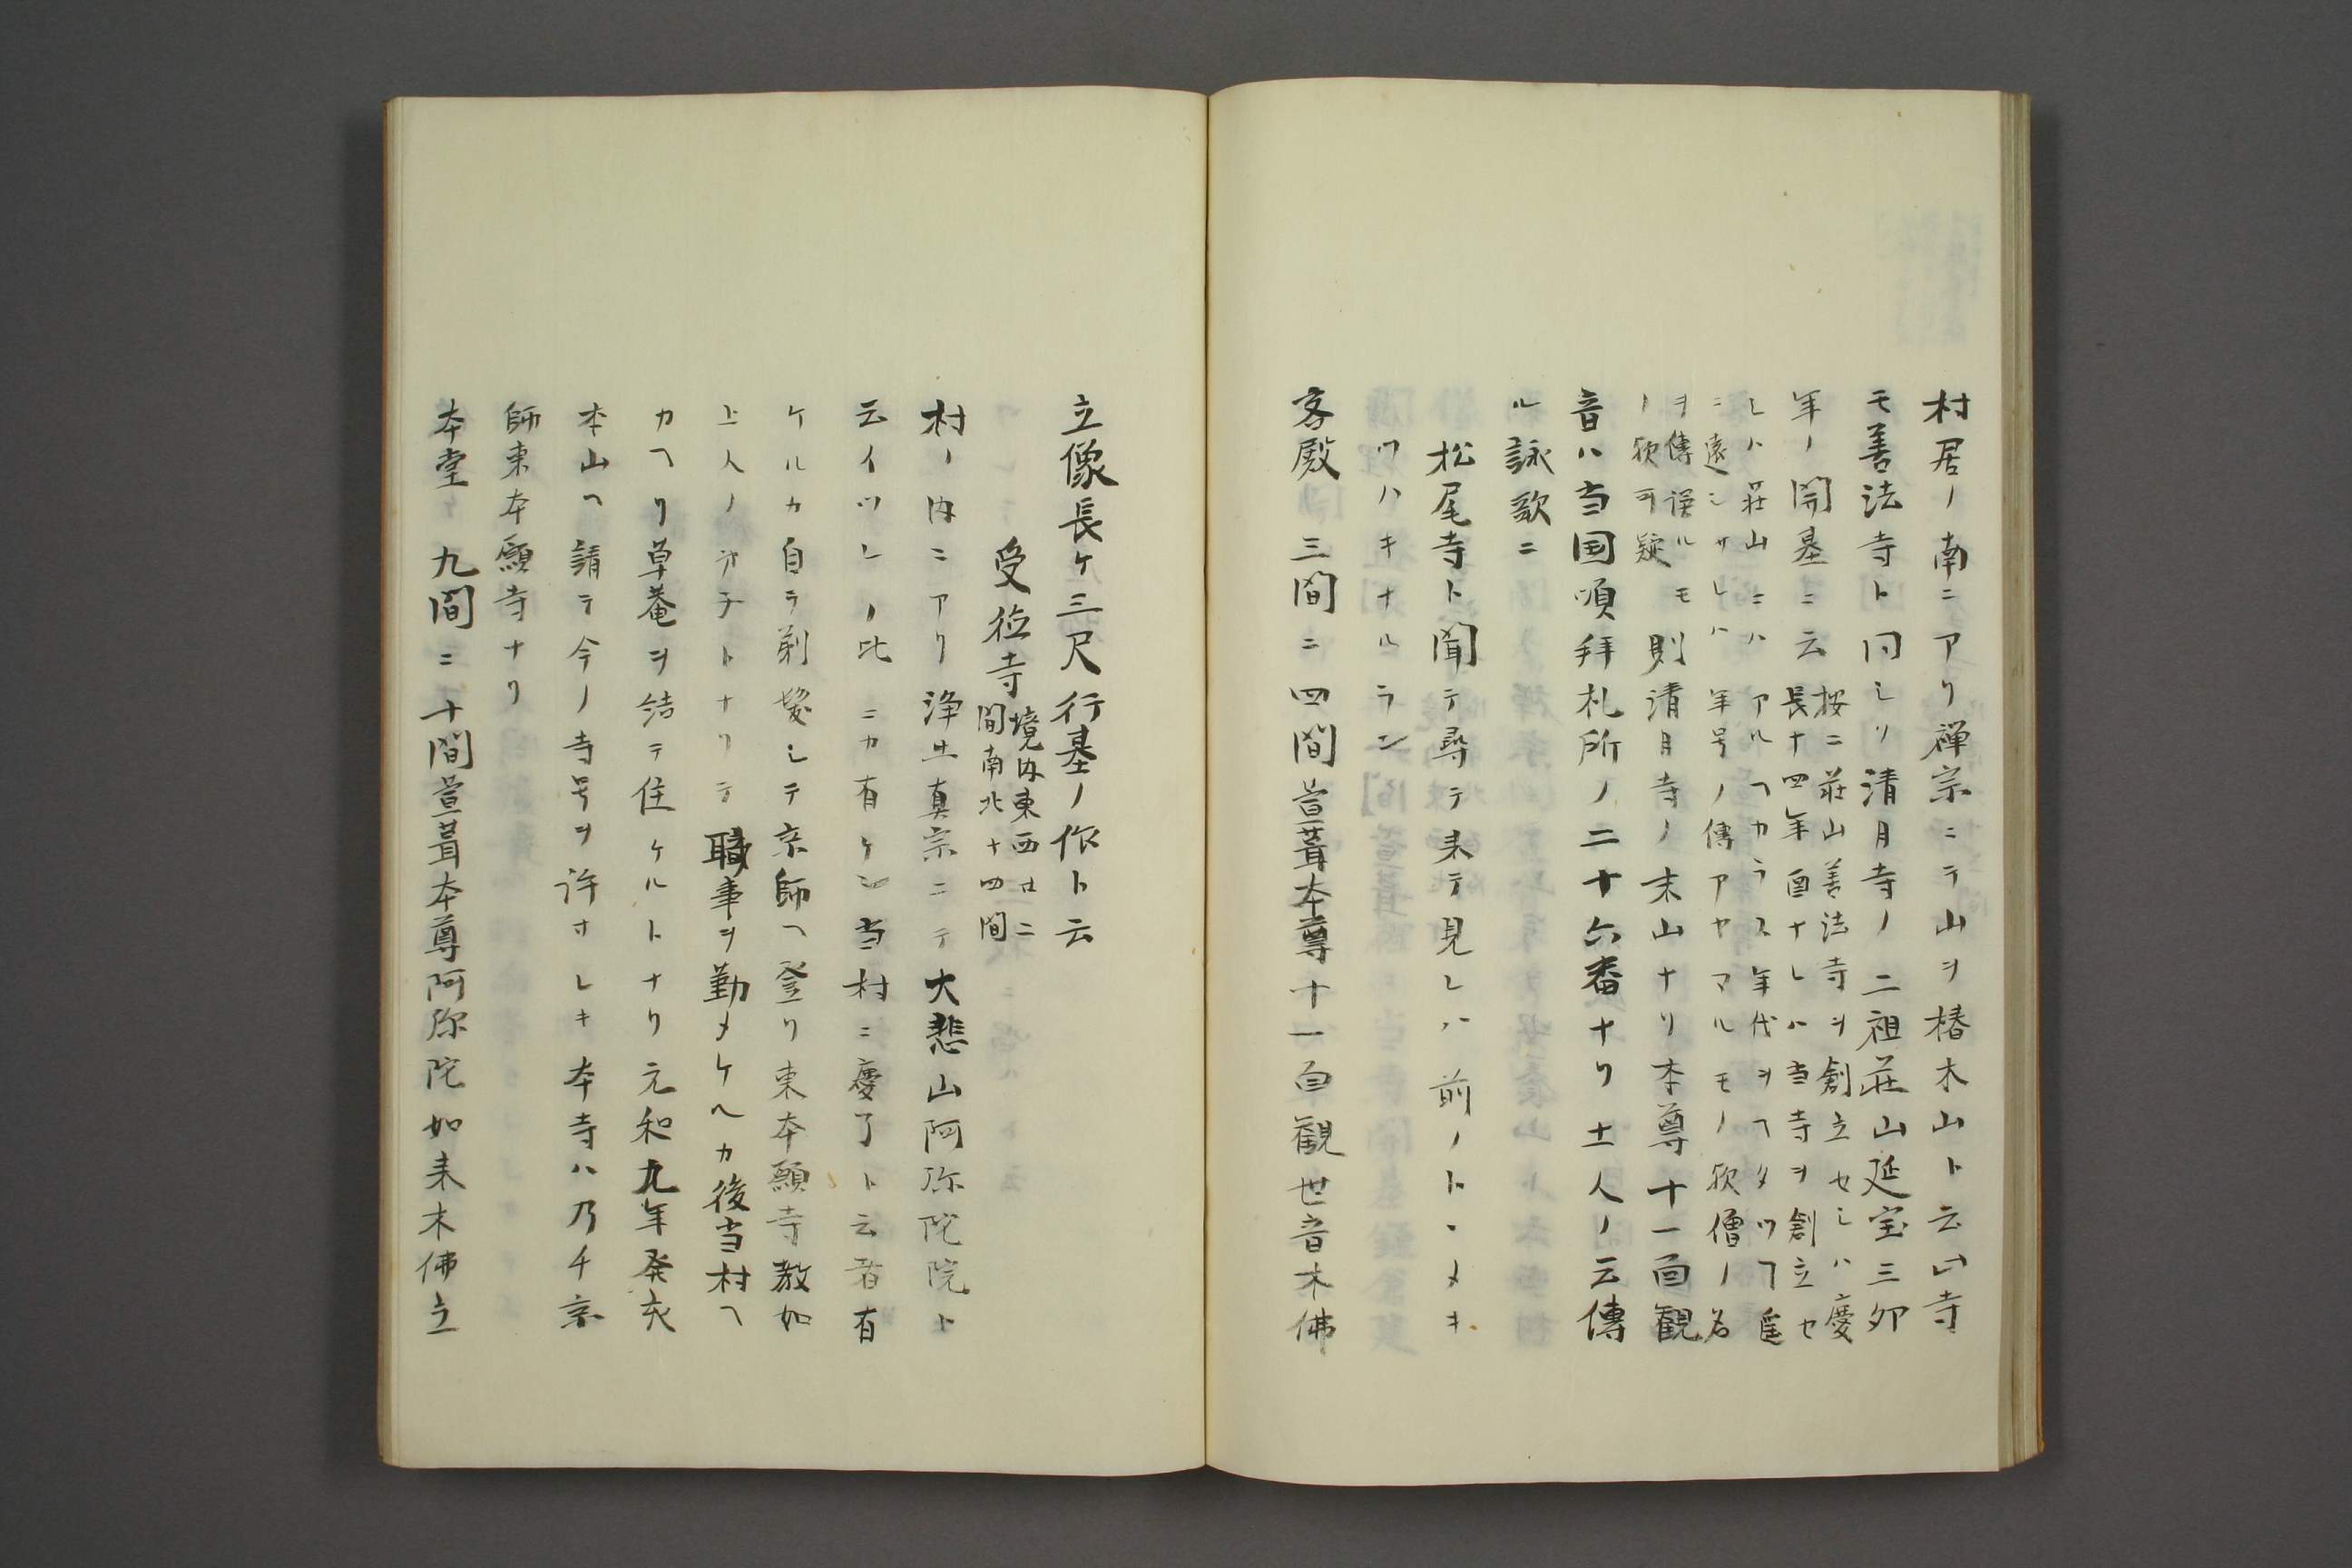 村居ノ南ニアリ禅宗ニテ山ヲ椿木山ト云此寺
モ善法寺ト同シク清月寺ノ二祖荘山延宝三卯
年ノ開基ニ云
按ニ荘山善法寺ヲ創立セシハ慶
長十四年酉ナレハ当寺ヲ創立セ
シハ荘山ニハアルヘカラス年代ヲヘタツフ
ニ遠シサレハ年号ノ傳アヤマルモノ歟僧ノ名
ヲ傳誤ルモ
ノ歟可疑
則清月寺ノ末山ナリ本尊十一面観
音ハ当国順拜札所ノ二十六番ナリ土人ノ云傳
ル詠歌ニ
松尾寺ト聞テ尋テ来テ見レハ前ノトヽメキ
ツハキナルラン
客殿 三間ニ四間萱葺本尊十一面観世音木佛
立像長ケ三尺行基ノ作ト云
受徳寺
境内東西廿二
間南北十四間
村ノ内ニアリ浄土真宗ニテ大悲山阿弥陀院ト
云イツレノ比ニカ有ケン当村ニ慶了ト云者有
ケルカ自ラ剃髪シテ京師ヘ登リ東本願寺教如
上人ノ弟子トナリテ職事ヲ勤メケヘカ後当村ヘ
カヘリ草菴ヲ結テ住ケルトナリ元和九年癸亥
本山ヘ請テ今ノ寺号ヲ許サレキ本寺ハ乃チ京
師東本願寺ナリ
本堂 九間ニ十間萱葺本尊阿弥陀如来木佛立